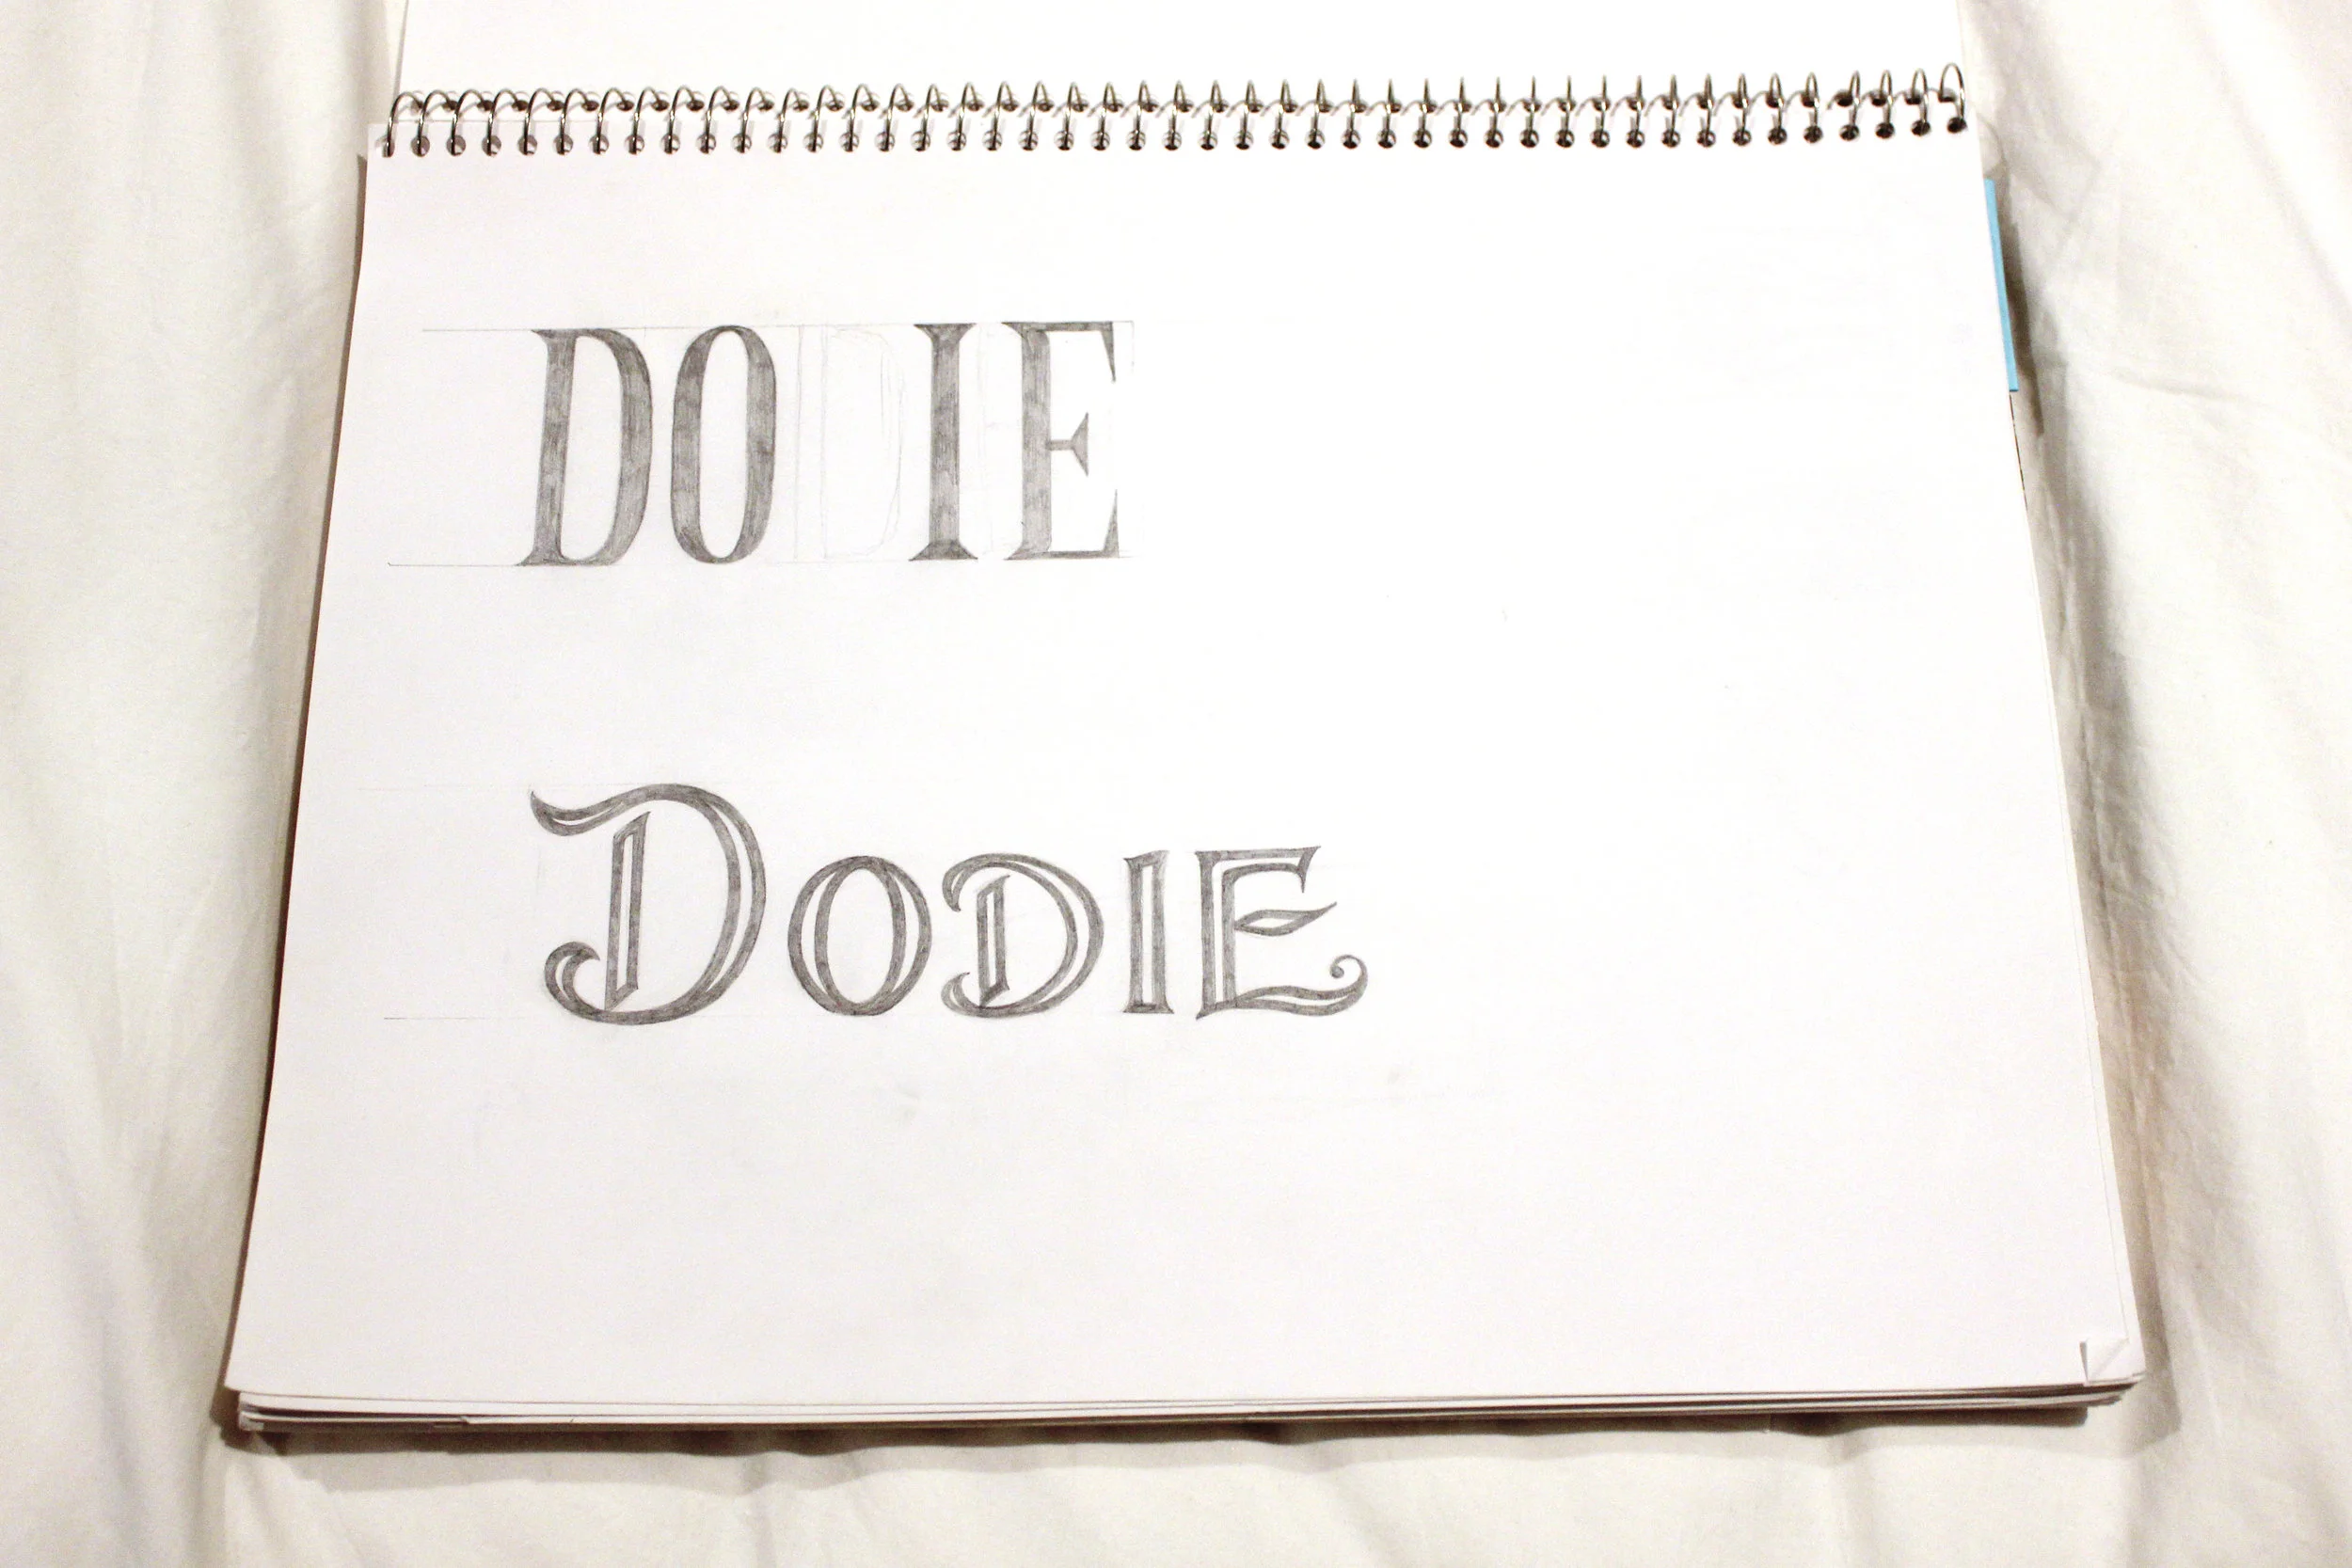 DODIE
DODIE